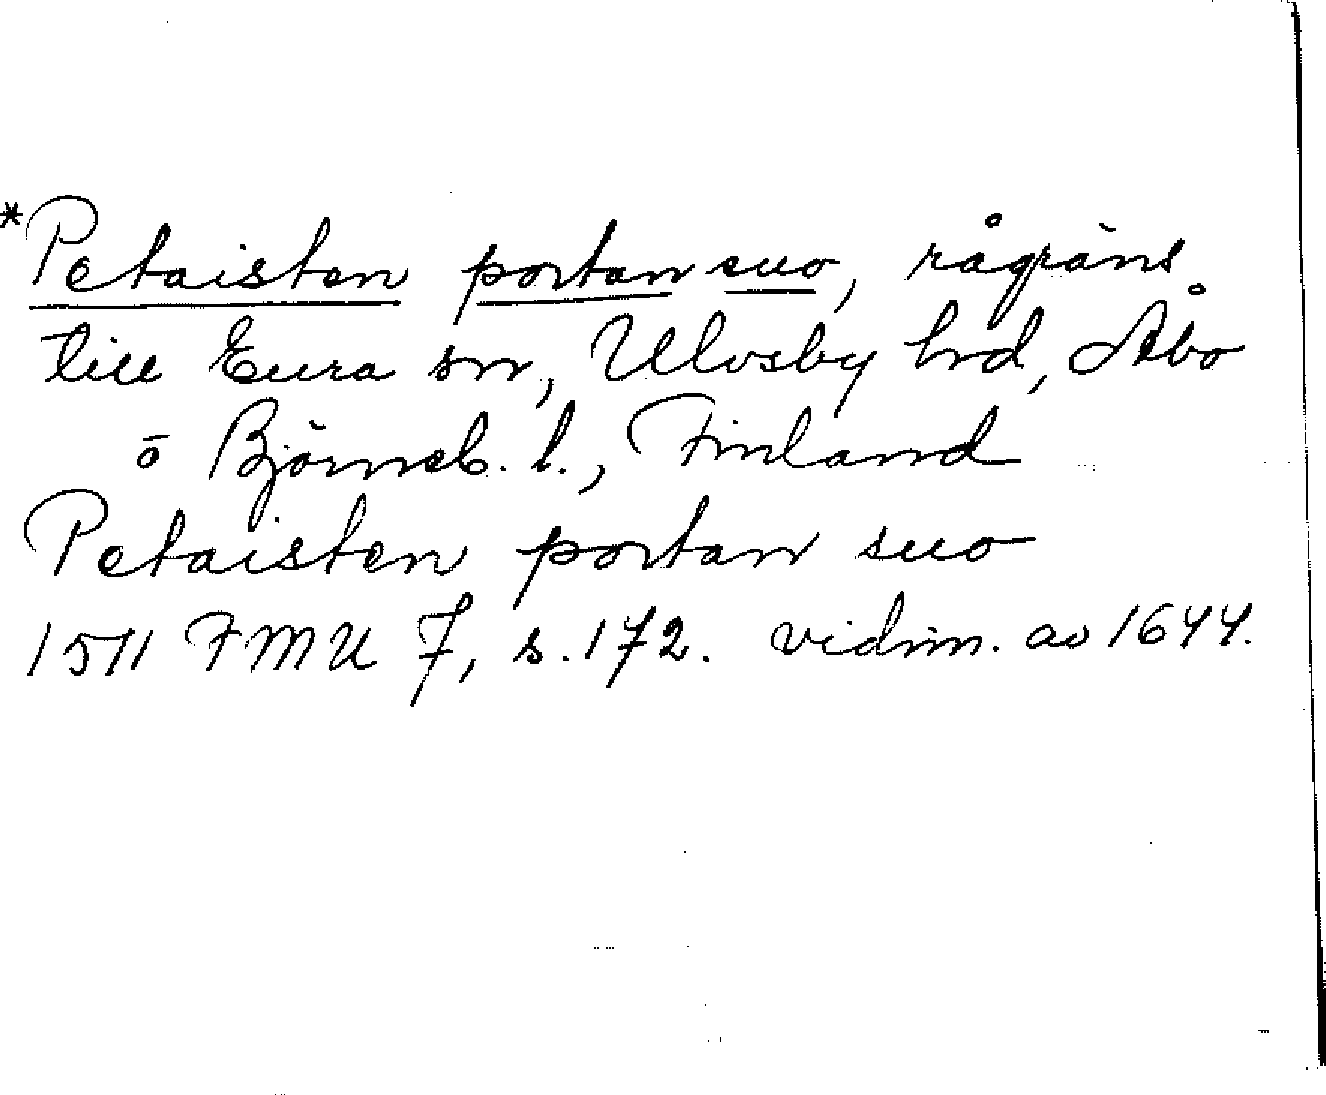 *Petaisten portan suo, rågräns
till Eura sn, Ulvsby hrd, Åbo
o Björneb. l., Finland
Petaisten portan suo
1511 FMU 7, s. 172. vidim. av 1644.